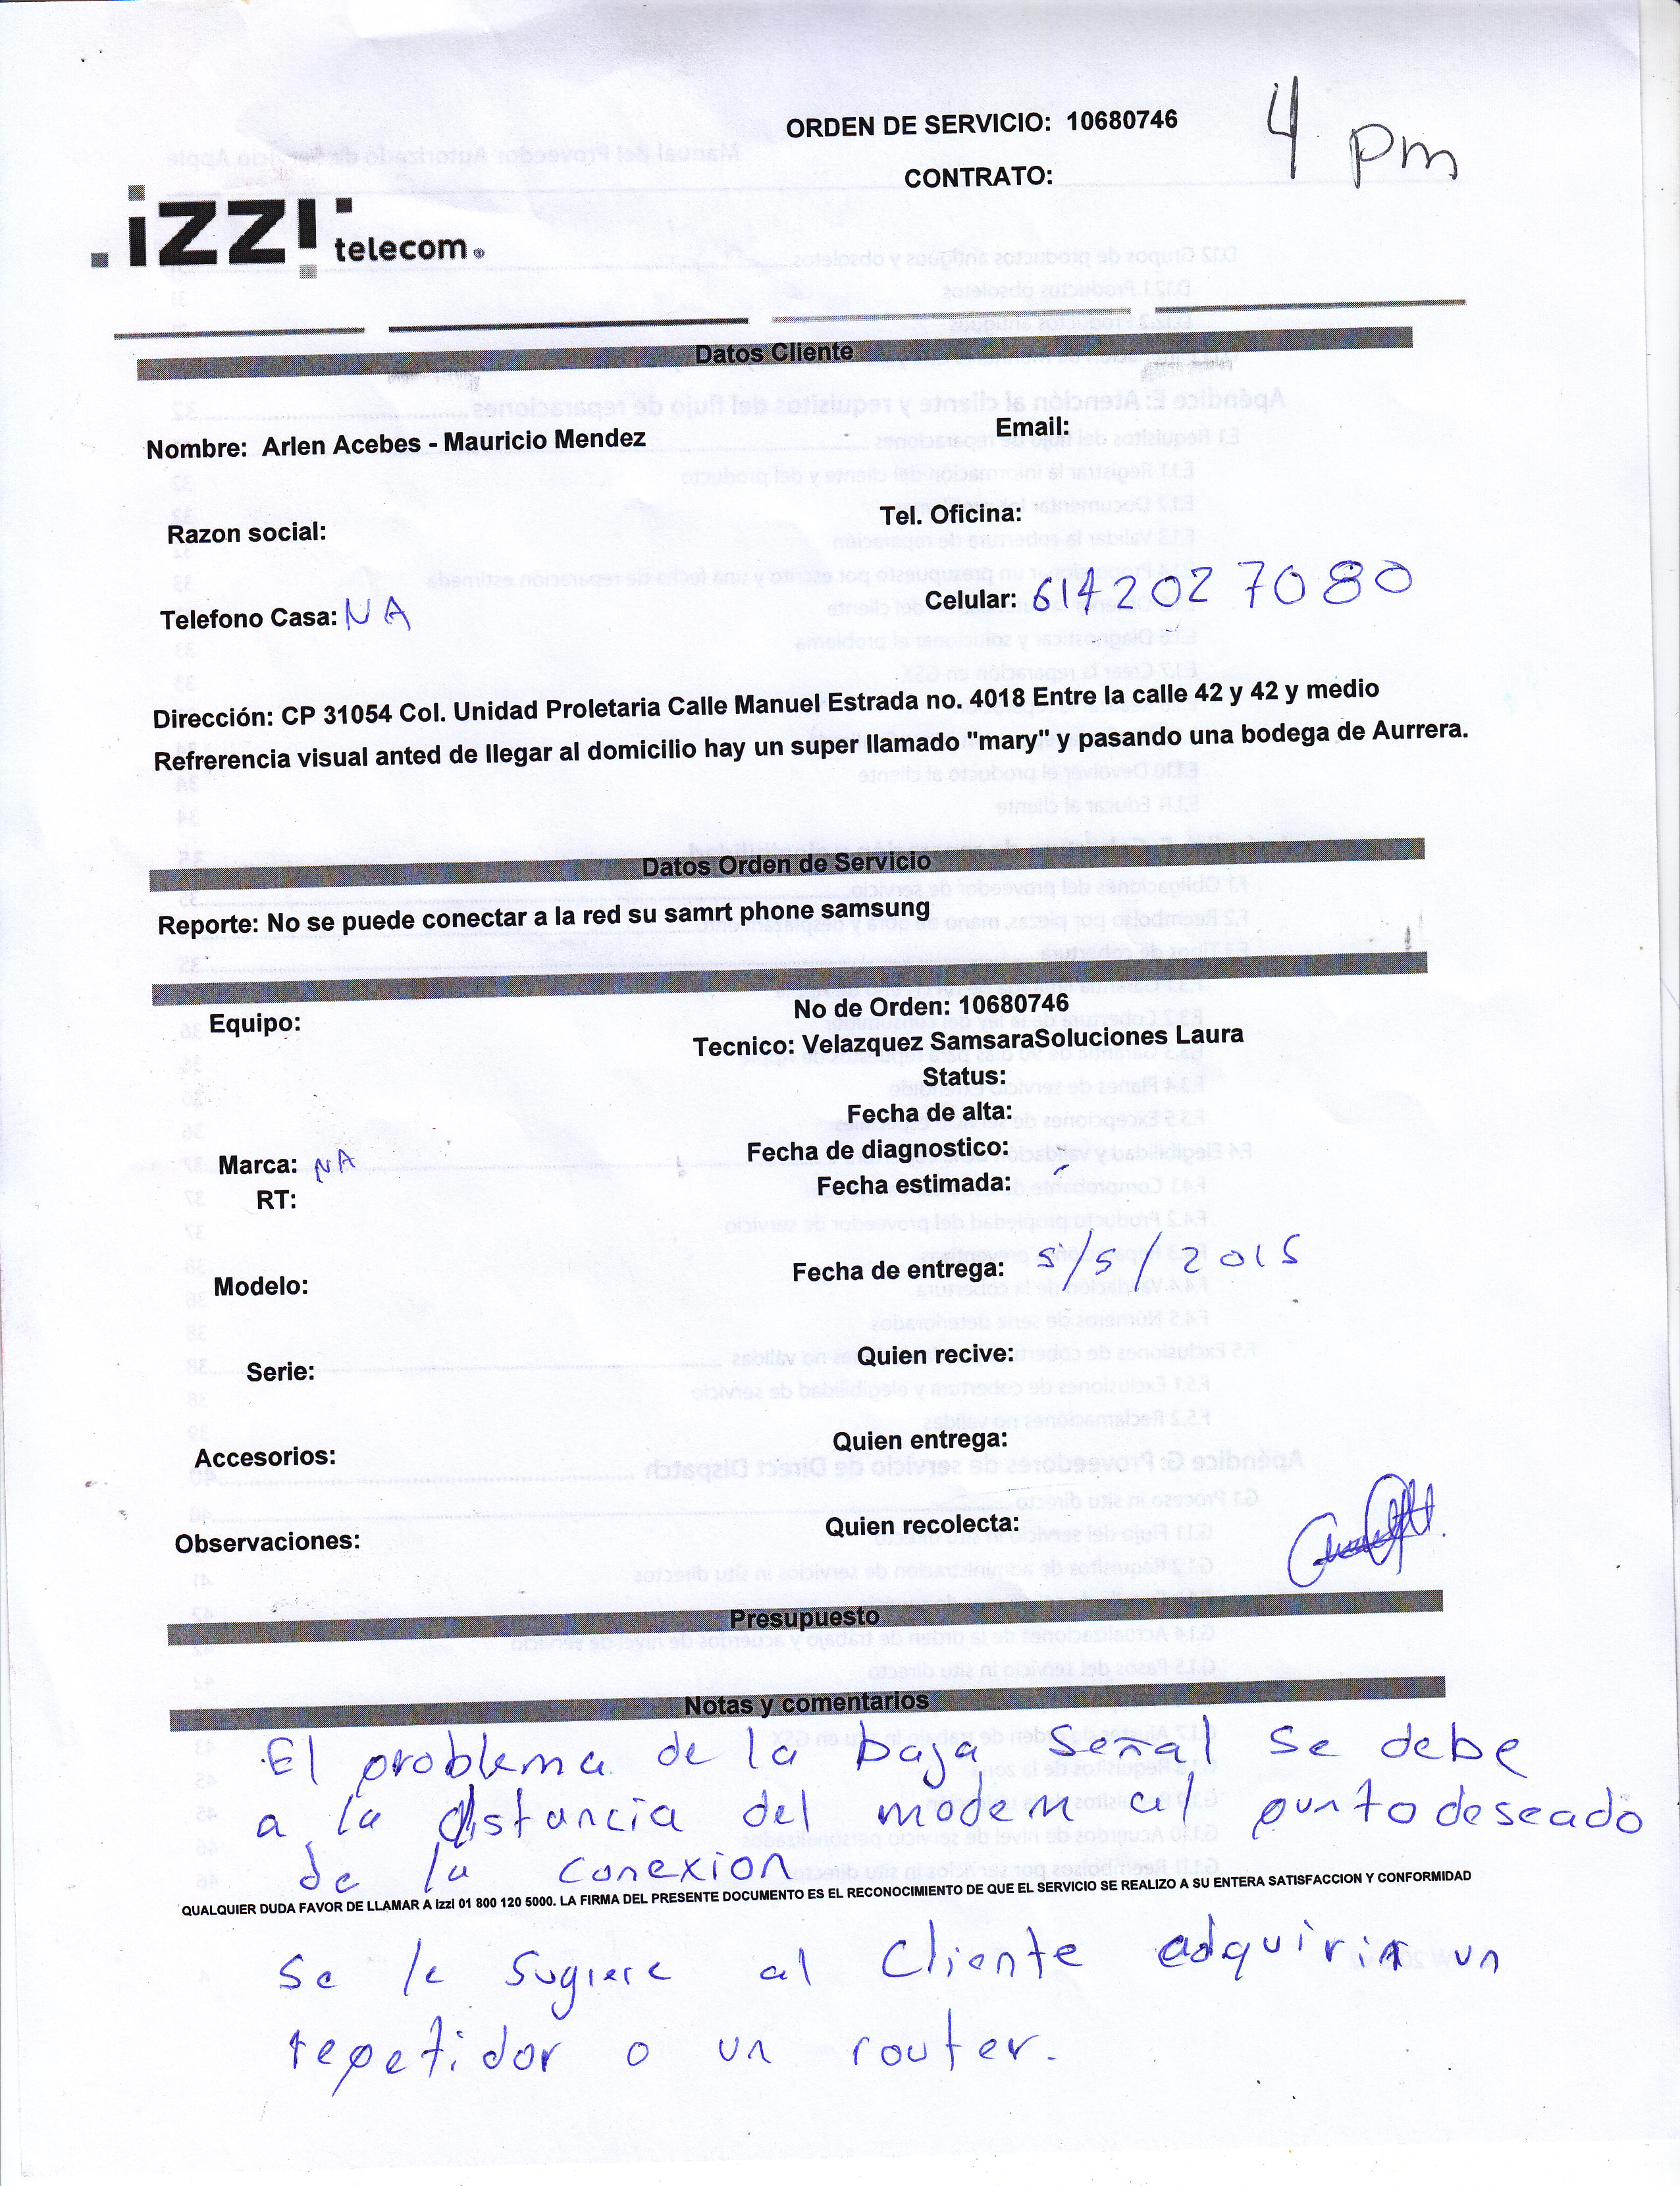 ORDEN DE SERVICIO: 10680746
4 pm
CONTRATO:
izzi telecom
Datos Cliente
Nombre: Arlen Acebes - Mauricio Mendez
Email:
Razon social:
Tel. Oficina:
Telefono Casa: NA
Celular: 6142027080
Dirección: CP 31054 Col. Unidad Proletaria Calle Manuel Estrada no. 4018 Entre la calle 42 y 42 y medio
Refrerencia visual anted de llegar al domicilio hay un super llamado "mary" y pasando una bodega de Aurrera.
Datos Orden de Servicio
Reporte: No se puede conectar a la red su samrt phone samsung
Equipo:
No de Orden: 10680746
Tecnico: Velazquez SamsaraSoluciones Laura
Status:
Fecha de alta:
Fecha de diagnostico:
Marca: NA
Fecha estimada:
RT:
Fecha de entrega: 5/5/2015
Modelo:
Quien recive:
Serie:
Quien entrega:
Accesorios:
Quien recolecta:
Observaciones:
Presupuesto
Notas y comentarios
El problema de la baja señal se debe
a la distancia del modem al punto deseado
de la conexion
QUALQUIER DUDA FAVOR DE LLAMAR A izzi 01 800 120 5000. LA FIRMA DEL PRESENTE DOCUMENTO ES EL RECONOCIMIENTO DE QUE EL SERVICIO SE REALIZO A SU ENTERA SATISFACCION Y CONFORMIDAD
Se le sugiere al Cliente adquirir un
repetidor o un router.